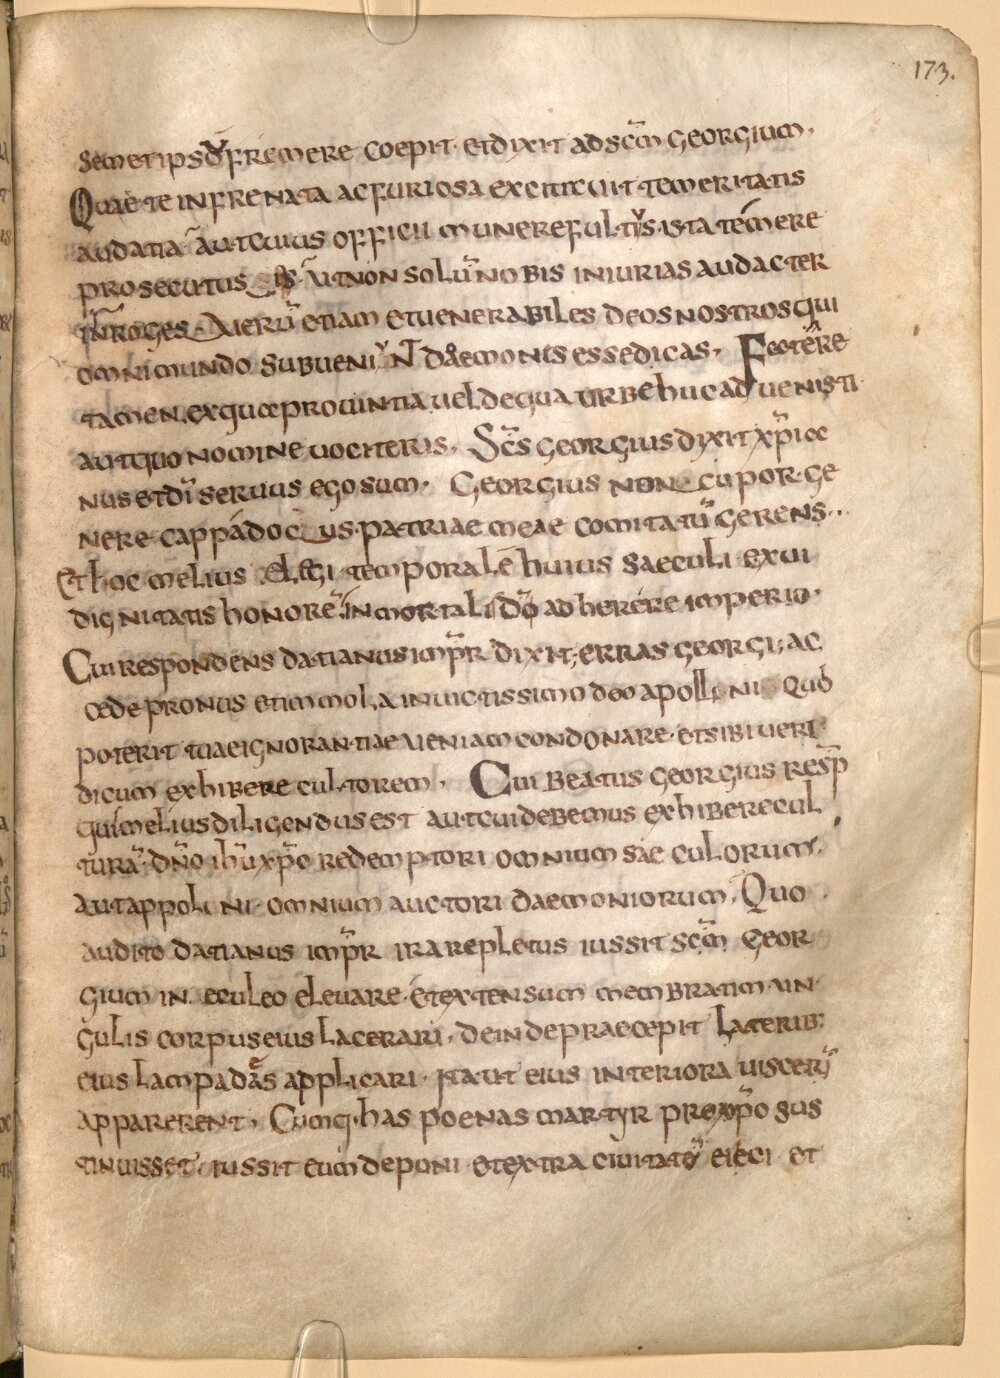 173.
semetipsū fremere coepit· et dixit ad scm̄ georgium·
Quae te infrenata ac furiosa excitavit temeritatis
audatia· aut cuius officii munere fultus ista temere
prosecutus sis· ut non solū nobis iniurias audacter
inroges· Verū etiam et venerabiles deos nostros qui
omni mundo subveniunt daemonis esse dicas· Fatere
tamen, ex qua provintia vel de qua urbe huc advenisti·
aut quo nomine vociteris· Scs̄ georgius dyxit xp̄ia
nus et dī servus ego sum· Georgius nuncupor ge
nere cappadocus· patriae meae comitatū gerens···
Et hoc melius elegi temporalē huius saeculi exui
dignitatis honorē· inmortalis dō adherere imperio·
Cui respondens datianus imp̄r dixit; erras georgi, ac
cede pronus et immola invictissimo deo apolloni quo
poterit tuae ignorantiae veniam condonare· et sibi veri
dicum exhibere cultorem· Cui beatus georgius resp̄
qui melius diligendus est aut cui debemus exhibere cul
turā· dn̄o ihū xp̄o redemptori omnium saeculorum·
aut appoloni· omnium auctori daemoniorum· Quo
audito datianus imp̄r ira repletus iussit scm̄ geor
gium in eculeo elevare· et extensum membratim un
gulis corpus eius lacerari, deinde praecepit laterib;
eius lampadaes applicari· ita ut eius interiora viscerū
apparerent· Cumq· has poenas martyr pro xp̄o sus
tinuisset· iussit eum deponi et extra civitatē eieci et